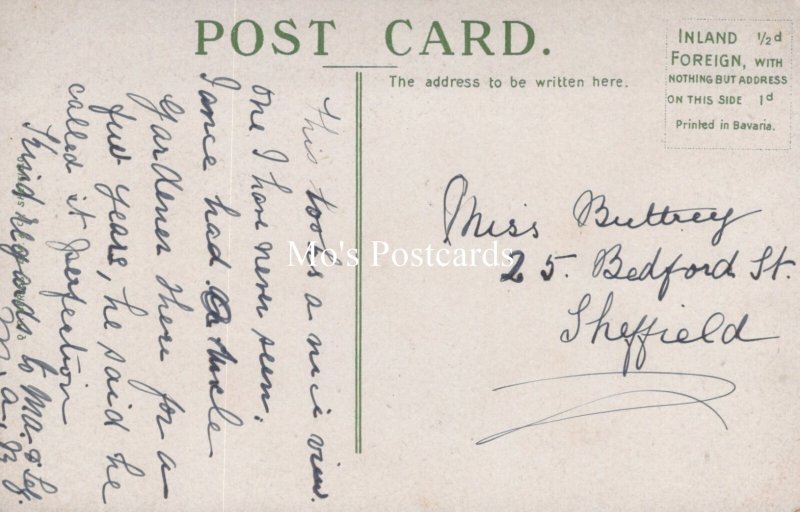 POST CARD.
The address to be written here.
INLAND ½d
FOREIGN, WITH
NOTHING BUT ADDRESS
ON THIS SIDE 1d
Printed in Bavaria.
This too is a nice view.
one I have never seen,
I once had a Uncle
Gardener there for a
few years, he said he
called it perfection
Kind regards to Ma. &
M. A. B.
Miss Buttrey
25. Bedford St.
Sheffield
Mo's Postcards